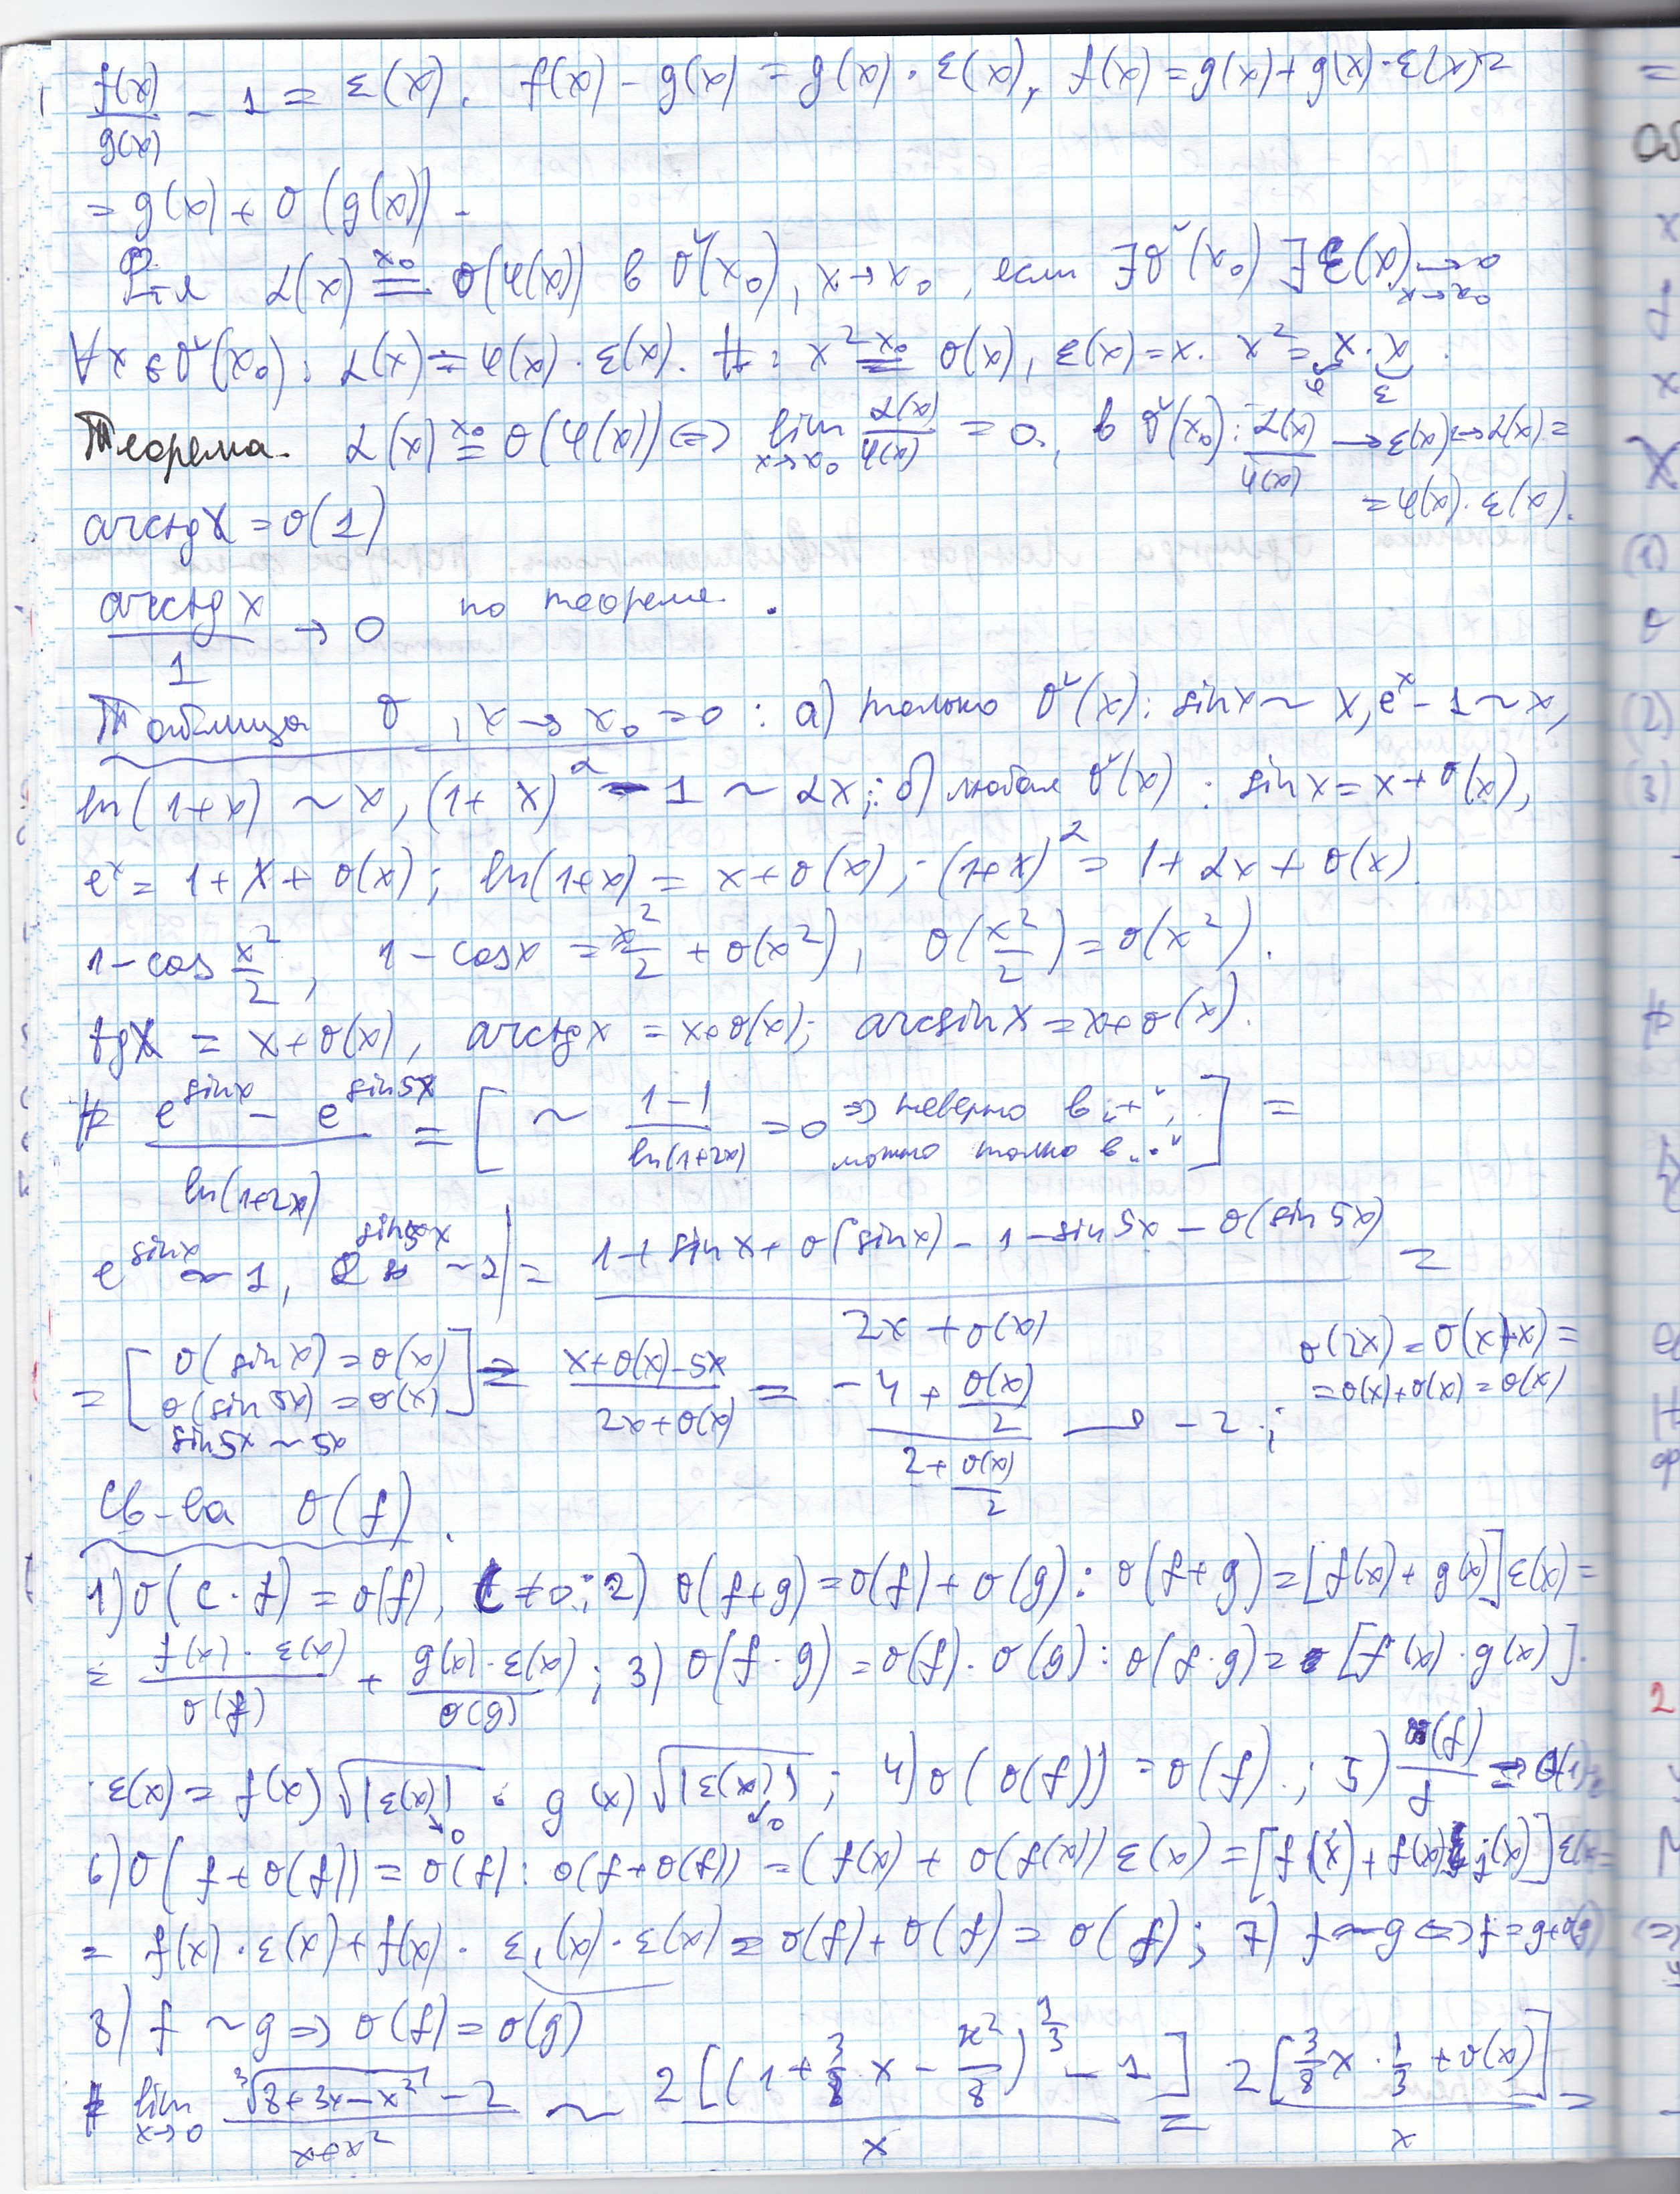 f(x)/g(x) - 1 = ε(x). f(x) - g(x) = g(x)·ε(x), f(x) = g(x) + g(x)·ε(x) =
= g(x) + o(g(x)) -
Ф-я α(x) x₀= o(h(x)) в Ů(x₀), x→x₀, если ∃Ů(x₀) ∃ε(x) →0 x→x₀
∀x∈Ů(x₀): α(x) = h(x)·ε(x). #: x² x₀= o(x), ε(x) = x. x² = x·x.
Теорема. α(x) x₀= o(h(x)) ⇔ lim x→x₀ α(x)/h(x) = 0. в Ů(x₀): α(x)/h(x) ← ε(x) ↔ α(x) =
= h(x)·ε(x).
arctgx = o(1)
arctg x / 1 → 0 по теореме.
Таблица o, x → x₀ = 0: а) только Ů(x): sinx ~ x, eˣ - 1 ~ x,
ln(1+x) ~ x, (1+x)^α - 1 ~ αx; б) любая Ů(x): sinx = x + o(x),
eˣ = 1 + x + o(x); ln(1+x) = x + o(x); (1+x)^α = 1 + αx + o(x).
1 - cos x²/2, 1 - cosx = x²/2 + o(x²), o(x²/2) = o(x²).
tgx = x + o(x), arctgx = x + o(x); arcsinx = x + o(x).
# (e^sinx - e^sin5x)/ln(1+2x) = [ ~ (1-1)/ln(1+2x) = 0 ⇒ неверно в "+", можно только в "·" ] =
e^sinx ~ 1, e^sin5x ~ 1 | = (1 + sinx + o(sinx) - 1 - sin5x - o(sin5x))/(2x + o(x)) =
= [ o(sinx) = o(x) o(sin5x) = o(x) sin5x ~ 5x ] = (x + o(x) - 5x)/(2x + o(x)) = (-4 + o(x)/2)/(2 + o(x)/2) → -2; o(2x) = o(x+x) = = o(x) + o(x) = o(x)
Св-ва o(f).
1) o(c·f) = o(f), c ≠ 0; 2) o(f+g) = o(f) + o(g): o(f+g) = [f(x) + g(x)]ε(x) =
= f(x)·ε(x)/o(f) + g(x)·ε(x)/o(g); 3) o(f·g) = o(f)·o(g): o(f·g) = [f(x)·g(x)].
·ε(x) = f(x)√|ε(x)| →0 · g(x)√|ε(x)| →0; 4) o(o(f)) = o(f).; 5) o(f)/f = o(1)
6) o(f+o(f)) = o(f): o(f+o(f)) = (f(x) + o(f(x)))ε(x) = [f(x) + f(x)
= f(x)·ε(x) + f(x)·ε₁(x)·ε(x) = o(f) + o(f) = o(f); 7) f ~ g ⇔ f = g + o(g)
8) f ~ g ⇒ o(f) = o(g)
# lim x→0 (³√(8+3x-x²) - 2)/(x+x²) ~ 2[(1 + 3/8·x - x²/8)^1/3 - 1]/x = 2[3/8x·1/3 + o(x)]/x =